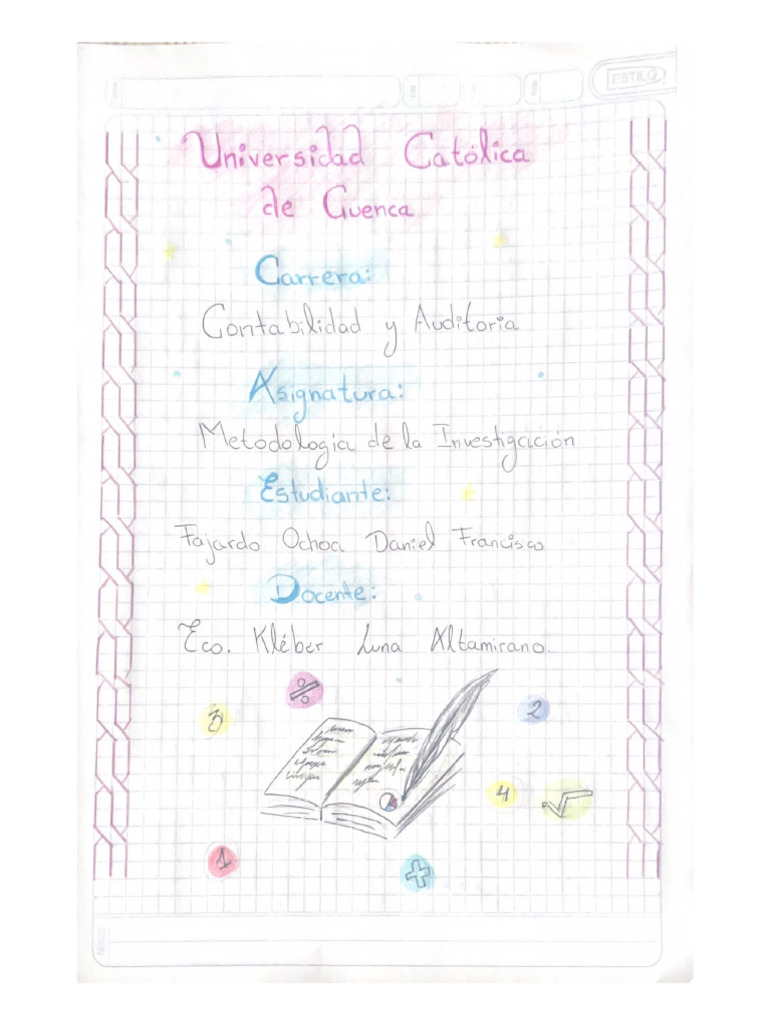 ESTILO
Universidad Católica
de Cuenca
Carrera:
Contabilidad y Auditoria
Asignatura:
Metodologia de la Investigación
Estudiante:
Fajardo Ochoa Daniel Francisco
Docente:
Eco. Kléber Luna Altamirano.
÷
3
2
4
√
1
+